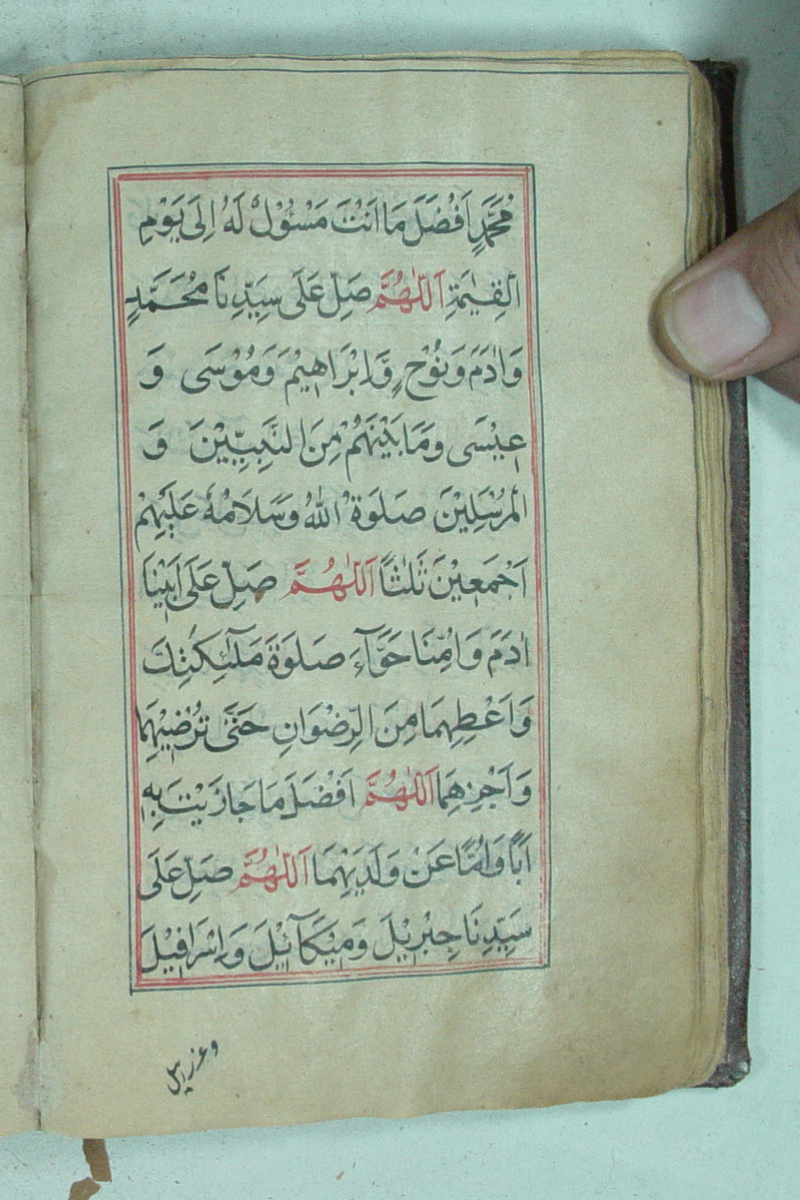 مُحَمَّدٍ اَفْضَلَ مَا اَنْتَ مَسْئُوْلٌ لَهُ اِلَى يَوْمِ
الْقِيٰمَةِ اَللّٰهُمَّ صَلِّ عَلَى سَيِّدِنَا مُحَمَّدٍ
وَاٰدَمَ وَنُوْحٍ وَّاِبْرَاهِيْمَ وَمُوْسَى وَ
عِيْسَى وَمَا بَيْنَهُمْ مِنَ النَّبِيِّيْنَ وَ
الْمُرْسَلِيْنَ صَلَوٰةُ اللّٰهِ وَسَلَامُهٗ عَلَيْهِمْ
اَجْمَعِيْنَ ثَلٰثًا اَللّٰهُمَّ صَلِّ عَلَى اَبِيْنَا
اٰدَمَ وَاُمِّنَا حَوَّآءَ صَلَوٰةَ مَلٰٓئِكَتِكَ
وَاَعْطِهِمَا مِنَ الرِّضْوَانِ حَتّٰى تُرْضِيْهِمَا
وَاَجْزِهِمَا اَللّٰهُمَّ اَفْضَلَ مَا جَازَيْتَ بِهٖ
اَبًا وَاُمًّا عَنْ وَلَدَيْهِمَا اَللّٰهُمَّ صَلِّ عَلَى
سَيِّدِنَا جِبْرِيْلَ وَمِيْكَآئِيْلَ وَاِسْرَافِيْلَ
وعزرایل